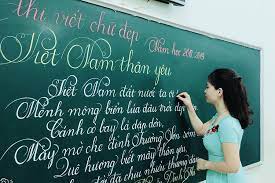 thi viết chữ đẹp
Năm học 2018-2019
Việt Nam thân yêu
Việt Nam đất nước ta ơi
Mênh mông biển lúa đâu trời đẹp
Cánh cò bay lả dập dờn,
Mây mờ che đỉnh Trường Sơn sớm
Quê hương biết mấy thân yêu,
đời đã chịu nhiều thương